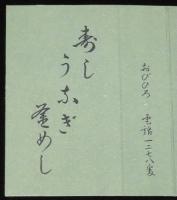 寿し
うなぎ
釜めし
おびひろ 電話一二七八番